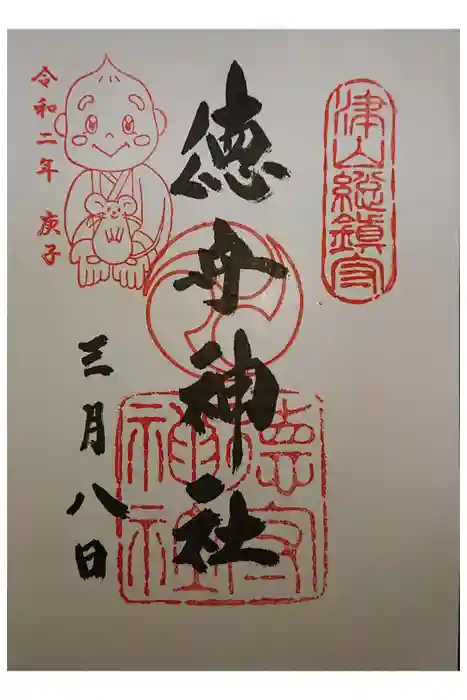 津山總鎮守
徳守神社
德守
神社
令和二年 庚子
三月八日